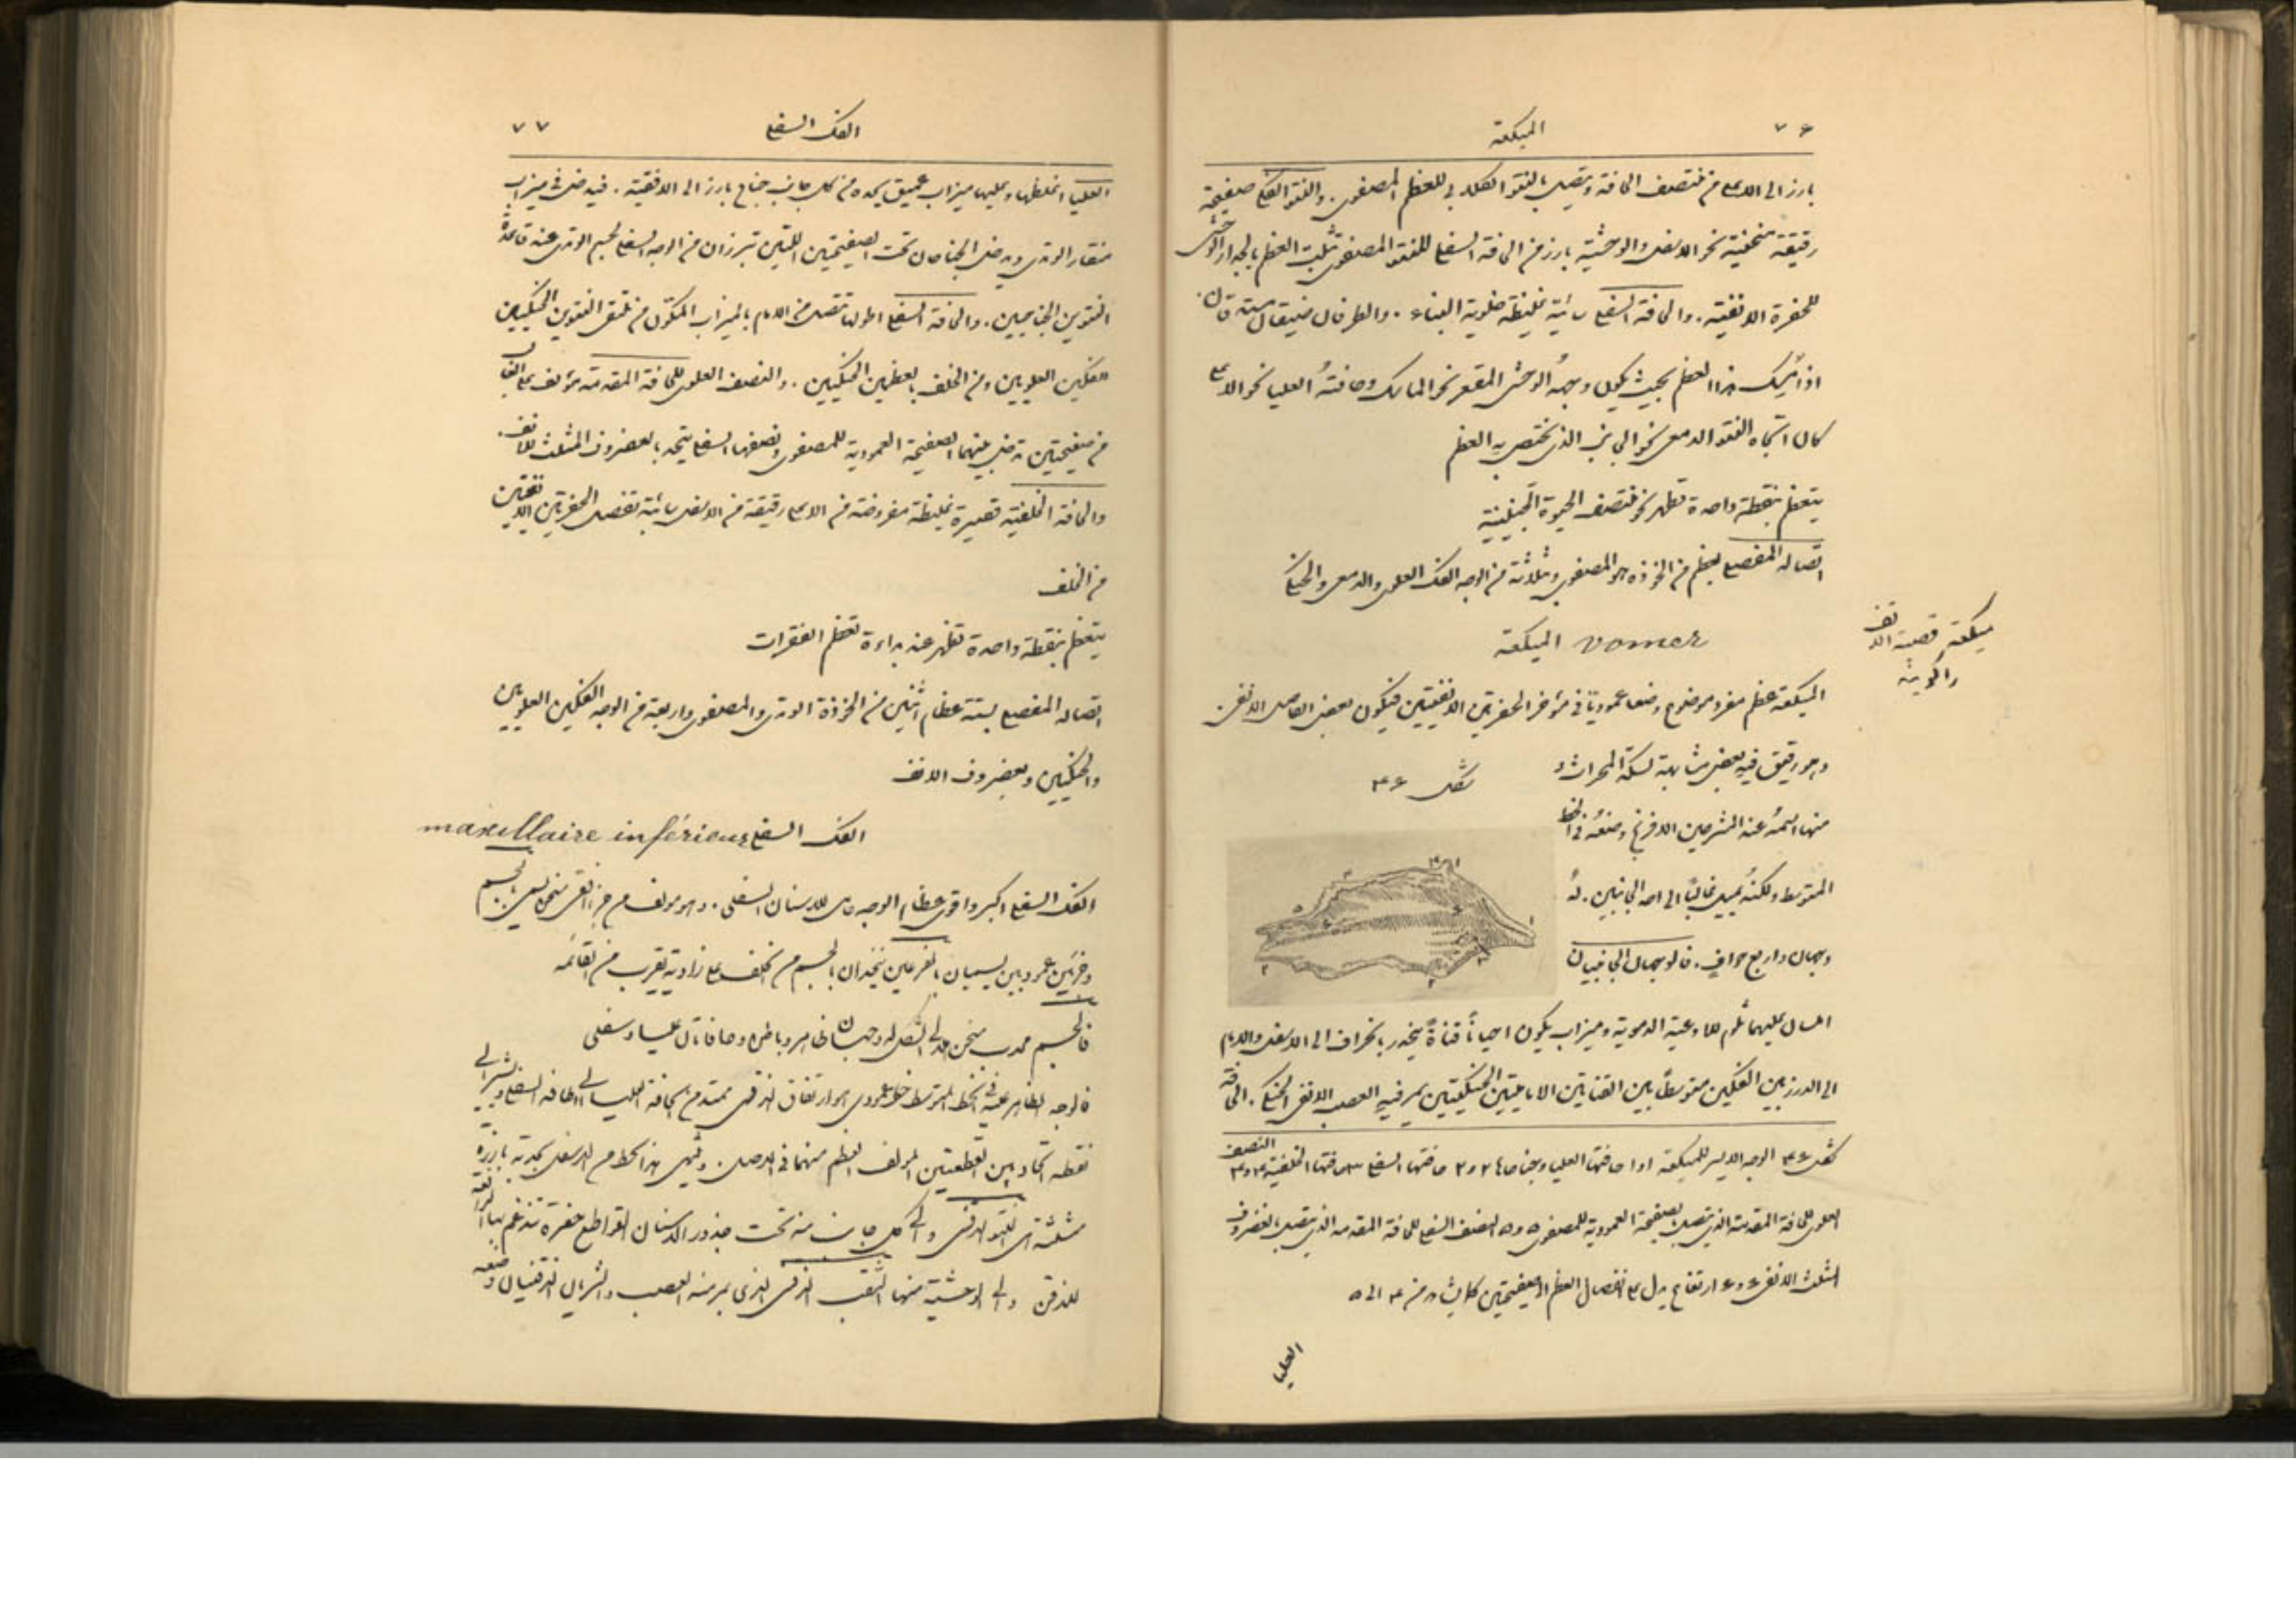 ٧٦ الميكعة
بارز الى الاعلى من منتصف الحافة ويتصل بالنتو الكلابي للعظم المصفوي. والنتو الفكي صفيحة
رقيقة منحنية نحو الاسفل والوحشية بارز من الحافة السفلى للنتو المصفوي تثبت العظم بالجدار الوحشي
للحفرة الانفية. والحافة السفلى سائبة غليظة خلوية البناء. والطرفان ضيقان مستدقان.
اذا مُسك هذا العظم بحيث يكون وجههُ الوحشي المقعر نحو الماسك وحافتهُ العليا نحو الاعلى
كان اتجاه النتو الدمعي نحو الجانب الذي يختص به العظم
يتعظم بنقطة واحدة تظهر نحو منتصف الحيوة الجنينية
اتصاله المفصلي بعظم من الخوذة هو المصفوي وثلاثة من الوجه الفك العلوي والدمعي والحنكي
vomer الميكعة
ميكعة قصبة الانف
الميكعة عظم مفرد موضوع وضعا عموديًا في مؤخر الحفرتين الانفيتين فيكون بعض الفاصل الانفي.
وهو رقيق فيه بعض مشابهة لسكة المحراث و
شكل ٤٦
منها اسمهُ عند المشرحين الافرنج وضعهُ في الخط
المتوسط ولكنهُ يميل غالبًا الى احد الجانبين. لهُ
وجهان واربع حوافٍ. فالوجهان الجانبيان
املسان عليهما ثلوم للاوعية الدموية وميزاب يكون احيانًا قناة ينحدر بانحراف الى الاسفل والامام
الى الدرز بين الفكين متوسطًا بين القناتين الاماميتين الحنكيتين يمر فيهِ العصب الانفي الحنكي. الحافة
شكل ٤٦ الوجه الايسر للميكعة ١و١ حافتها العليا وجناحاها ٢و٢ حافتها السفلى ٣ حافتها الخلفية ٤و٤ النصف
العلوي للحافة المقدمة الذي يتصل بالصفيحة العمودية للمصفوي ٥و٥ النصف السفلي للحافة المقدمة الذي يتصل بالغضروف
المثلث الانفي ٦و٦ ارتفاع يدل على انفصال العظم الى صفيحتين كما يشاهد من ٤ الى ٥
العليا
الفك السفلي ٧٧
العليا اغلظها وعليها ميزاب عميق يحده من كل جانب جناح بارز الى الافقية. فيدخل في ميزاب
منقار الوتدي ويدخل الجناحان تحت الصفيحتين اللتين تبرزان من الوجه السفلي لجسم الوتدي عند قاعدة
النتوين الجناحيين. والحافة السفلى اطولها تتصل من الامام بالميزاب المتكون من ملتقى النتوين الحنكيين
للفكين العلويين ومن الخلف بالعظمين الحنكيين. والنصف العلوي للحافة المقدمة مؤلف على الغالب
من صفيحتين تدخل بينهما الصفيحة العمودية للمصفوي ونصفها السفلي يتحد بالغضروف المثلث للانف.
والحافة الخلفية قصيرة غليظة مفروضة من الاعلى رقيقة من الاسفل سائبة تفصل الحفرتين الانفيتين
من الخلف
يتعظم بنقطة واحدة تظهر عند بداءة تعظم الفقرات
اتصاله المفصلي بستة عظام اثنين من الخوذة الوتدي والمصفوي واربعة من الوجه الفكين العلويين
والحنكيين وبغضروف الانف
الفك السفلي maxillaire inférieur
الفك السفلي اكبر واقوى عظام الوجه حامل للاسنان السفلى. وهو مؤلف من جزء افقي منحن يسمى الجسم
وجزئين عموديين يسميان بالفرعين يتحدان بالجسم من الخلف على زاوية تقرب من القائمة
فالجسم محدب منحن هلالي الشكل له وجهان ظاهر وباطن وحافتان عليا وسفلى
فالوجه الظاهر عليه في الخط المتوسط خط عمودي هو ارتفاق الذقن ممتد من الحافة العليا الى الحافة السفلى ويشير الى
نقطة اتحاد بين القطعتين المؤلف العظم منهما في الاصل. وينتهي هذا الخط من الاسفل بحدبة بارزة
مثلثة هي النتو الذقني والى كل جانب منه تحت جذور الاسنان القواطع حفرة تندغم بها الرافعة
للذقن والى الوحشية منها الثقب الذقني الذي يمر منه العصب والشريان الذقنيان وضعه